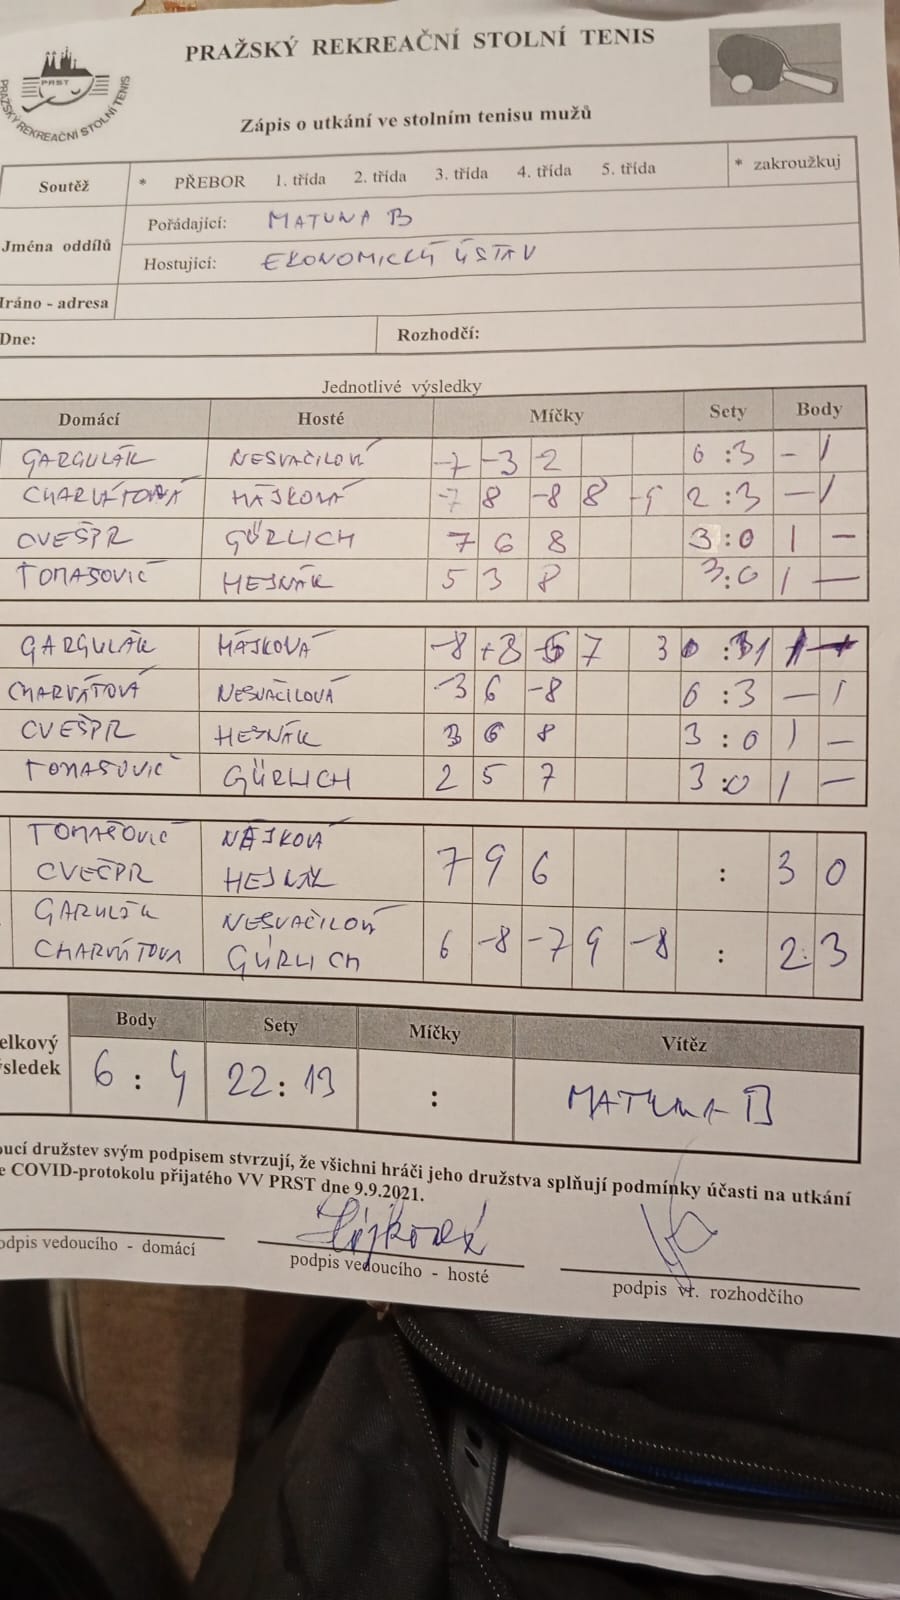 PRAŽSKÝ REKREAČNÍ STOLNÍ TENIS
PRST
PRAŽSKÝ REKREAČNÍ STOLNÍ TENIS
Zápis o utkání ve stolním tenisu mužů
Soutěž * PŘEBOR 1. třída 2. třída 3. třída 4. třída 5. třída * zakroužkuj
Jména oddílů
Pořádající: MATUNA B
Hostující: EKONOMICKÝ ÚSTAV
Hráno - adresa
Dne: Rozhodčí:
Jednotlivé výsledky
Domácí Hosté Míčky Sety Body
GARGULÁK NESVAČILOVÁ -7 -3 -2 0 :3 - 1
CHARVÁTOVÁ HÁJKOVÁ -7 8 -8 8 -9 2 :3 - 1
CVEŠPR GÜRLICH 7 6 8 3:0 1 -
TOMAŠOVIČ HEJNÁK 5 3 8 3:0 1 -
GARGULÁK HÁJKOVÁ -8 +8 7 3 : 1
CHARVÁTOVÁ NESVAČILOVÁ -3 6 -8 0 :3 - 1
CVEŠPR HEJNÁK 3 6 8 3 : 0 1 -
TOMAŠOVIČ GÜRLICH 2 5 7 3:0 1 -
TOMAŠOVIČ HÁJKOVÁ
CVEČPR HEJNÁK 7 9 6 : 3 0
GARULÁK NESVAČILOVÁ
CHARVÁTOVA GÜRLICH 6 -8 -7 9 -8 : 2: 3
Body Sety Míčky Vítěz
elkový
sledek 6 : 4 22: 13 : MATUNA B
oucí družstev svým podpisem stvrzují, že všichni hráči jeho družstva splňují podmínky účasti na utkání
e COVID-protokolu přijatého VV PRST dne 9.9.2021.
Hájková
odpis vedoucího - domácí podpis vedoucího - hosté podpis vr. rozhodčího